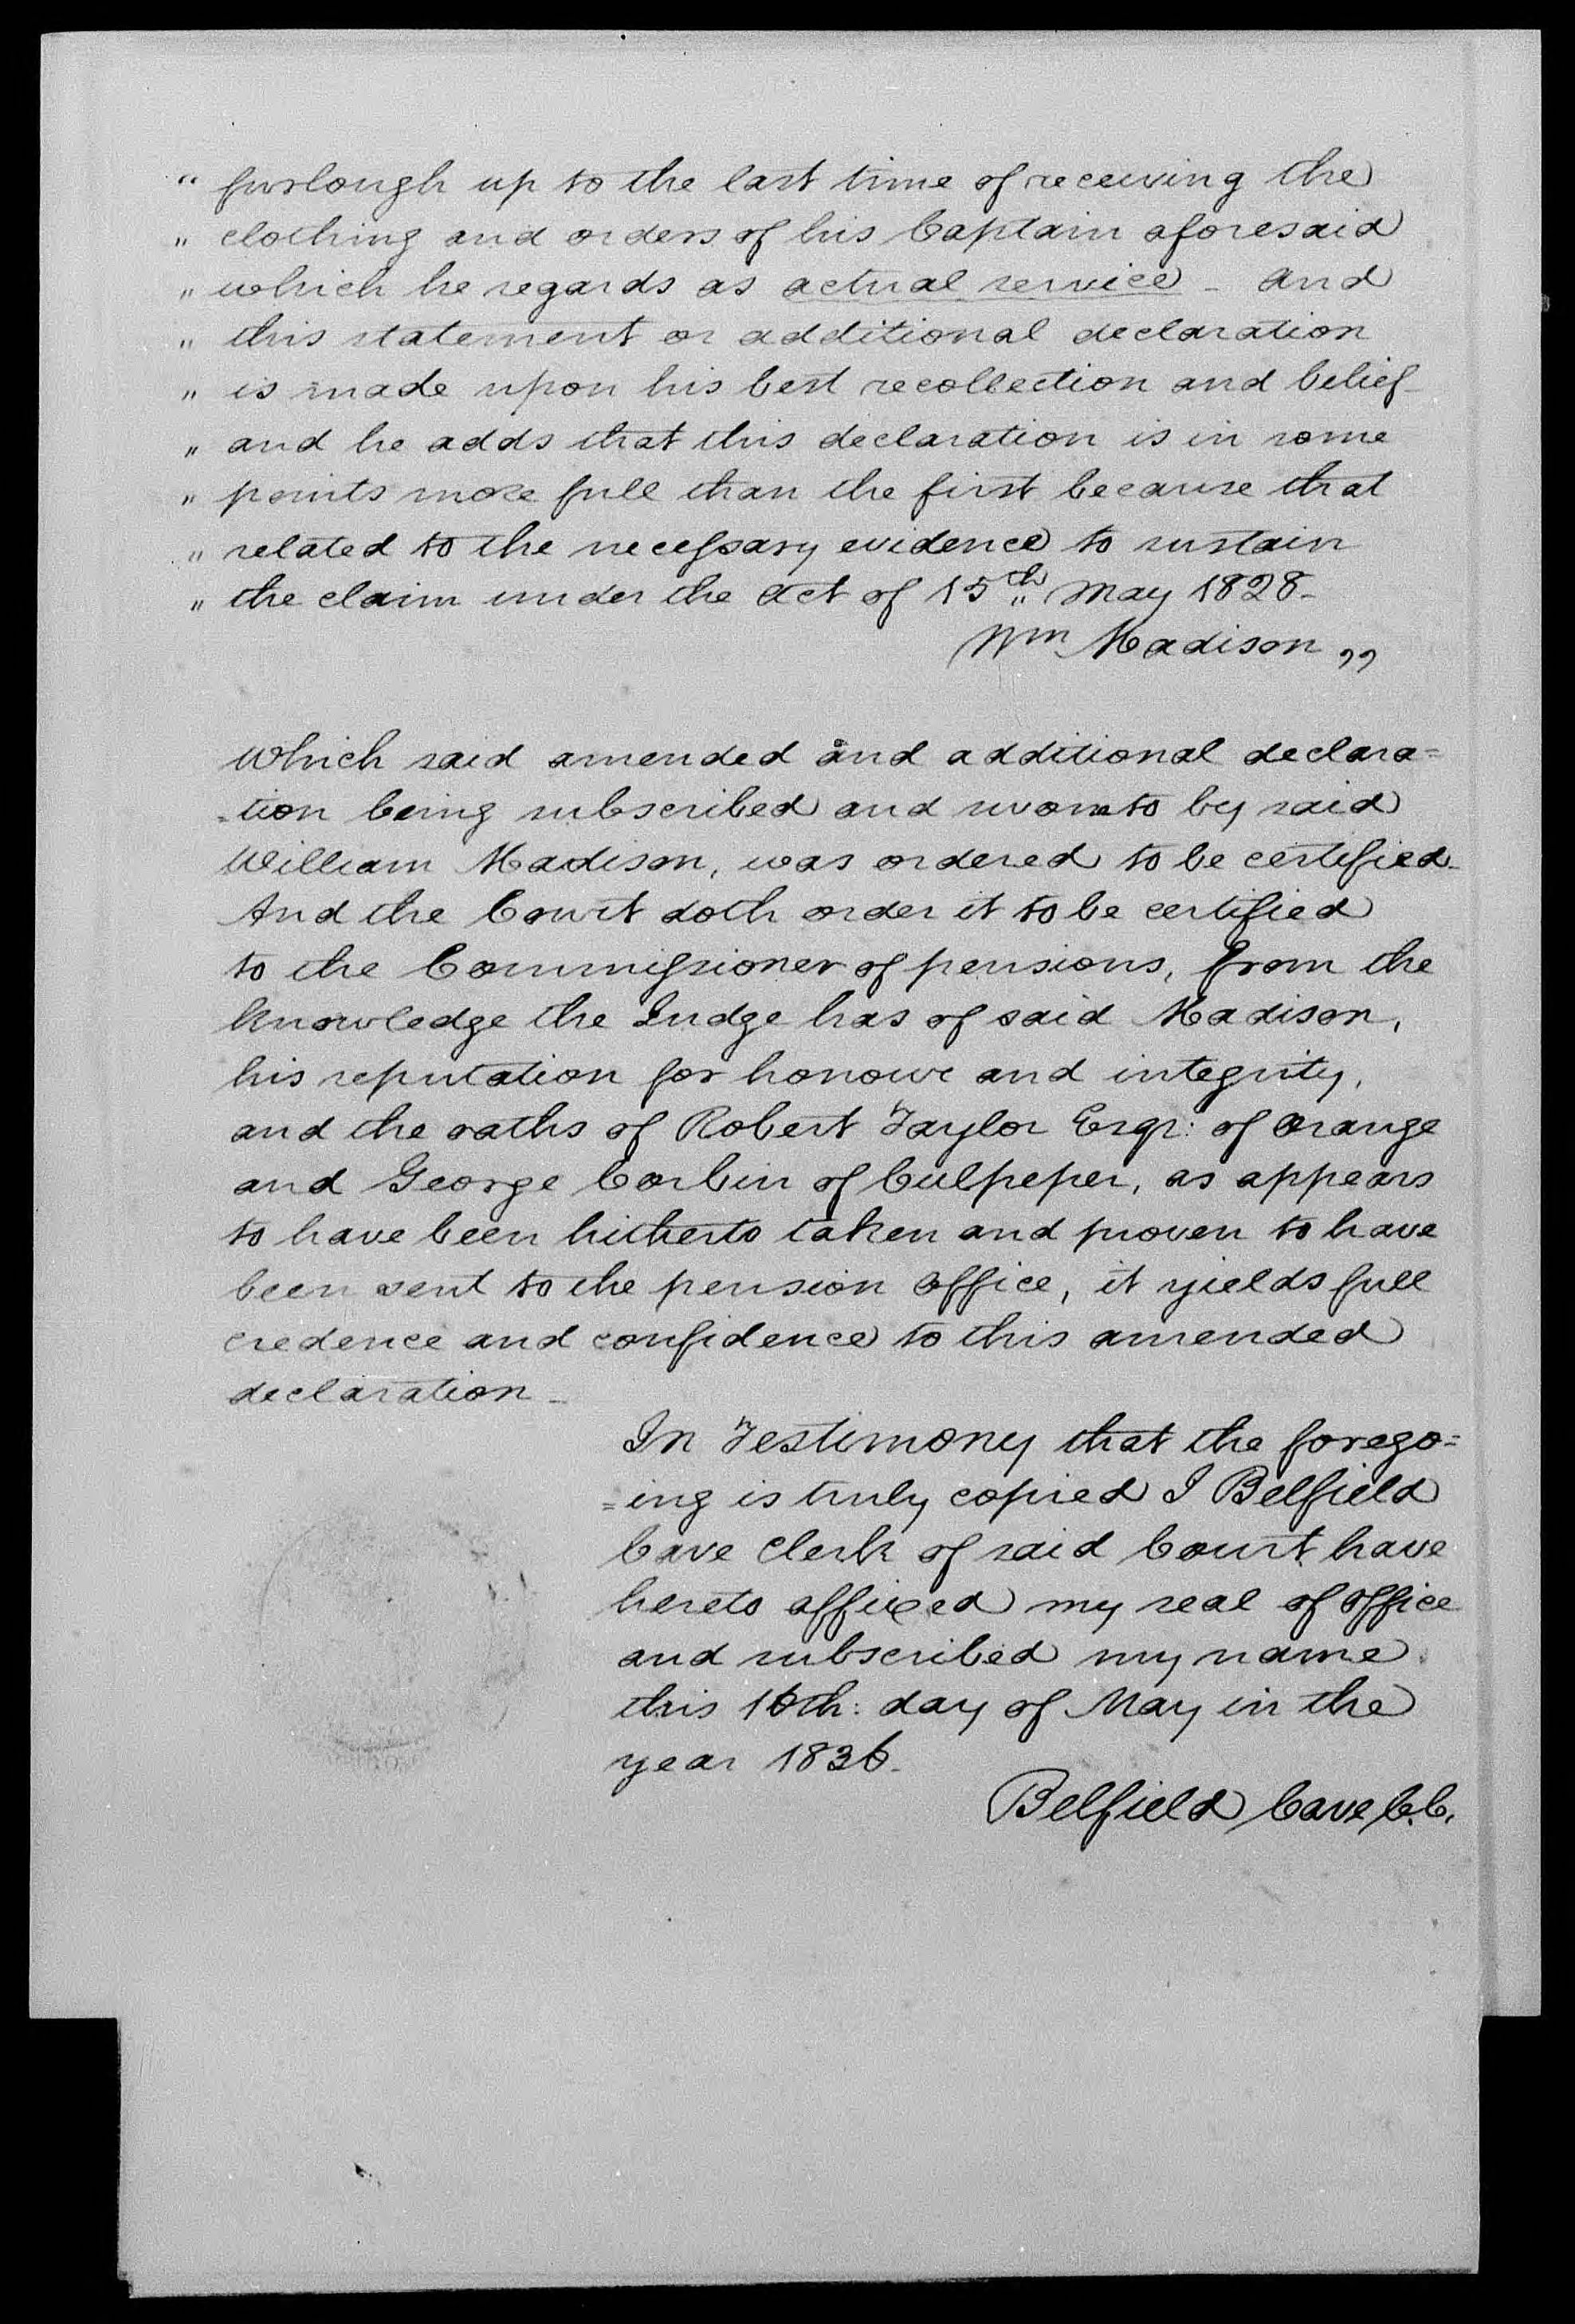 " furlough up to the last time of receiving the
" clothing and orders of his Captain aforesaid
" which he regards as actual service - And
" this statement or additional declaration
" is made upon his best recollection and belief -
" and he adds that this declaration is in some
" points more full than the first because that
" related to the necessary evidence to sustain
" the claim under the Act of 15th May 1828 -
Wm Madison "
Which said amended and additional declara=
=tion being subscribed and sworn to by said
William Madison, was ordered to be certified -
And the Court doth order it to be certified
to the Commissioner of pensions, from the
knowledge the Judge has of said Madison,
his reputation for honour and integrity,
and the oaths of Robert Taylor Esqr: of Orange
and George Corbin of Culpeper, as appears
to have been hitherto taken and proven to have
been sent to the pension Office, it yields full
credence and confidence to this amended
declaration -
In Testimony that the forego=
=ing is truly copied I Belfield
Cave Clerk of said Court have
hereto affixed my seal of office
and subscribed my name
this 16th: day of May in the
year 1836.
Belfield Cave C.C.